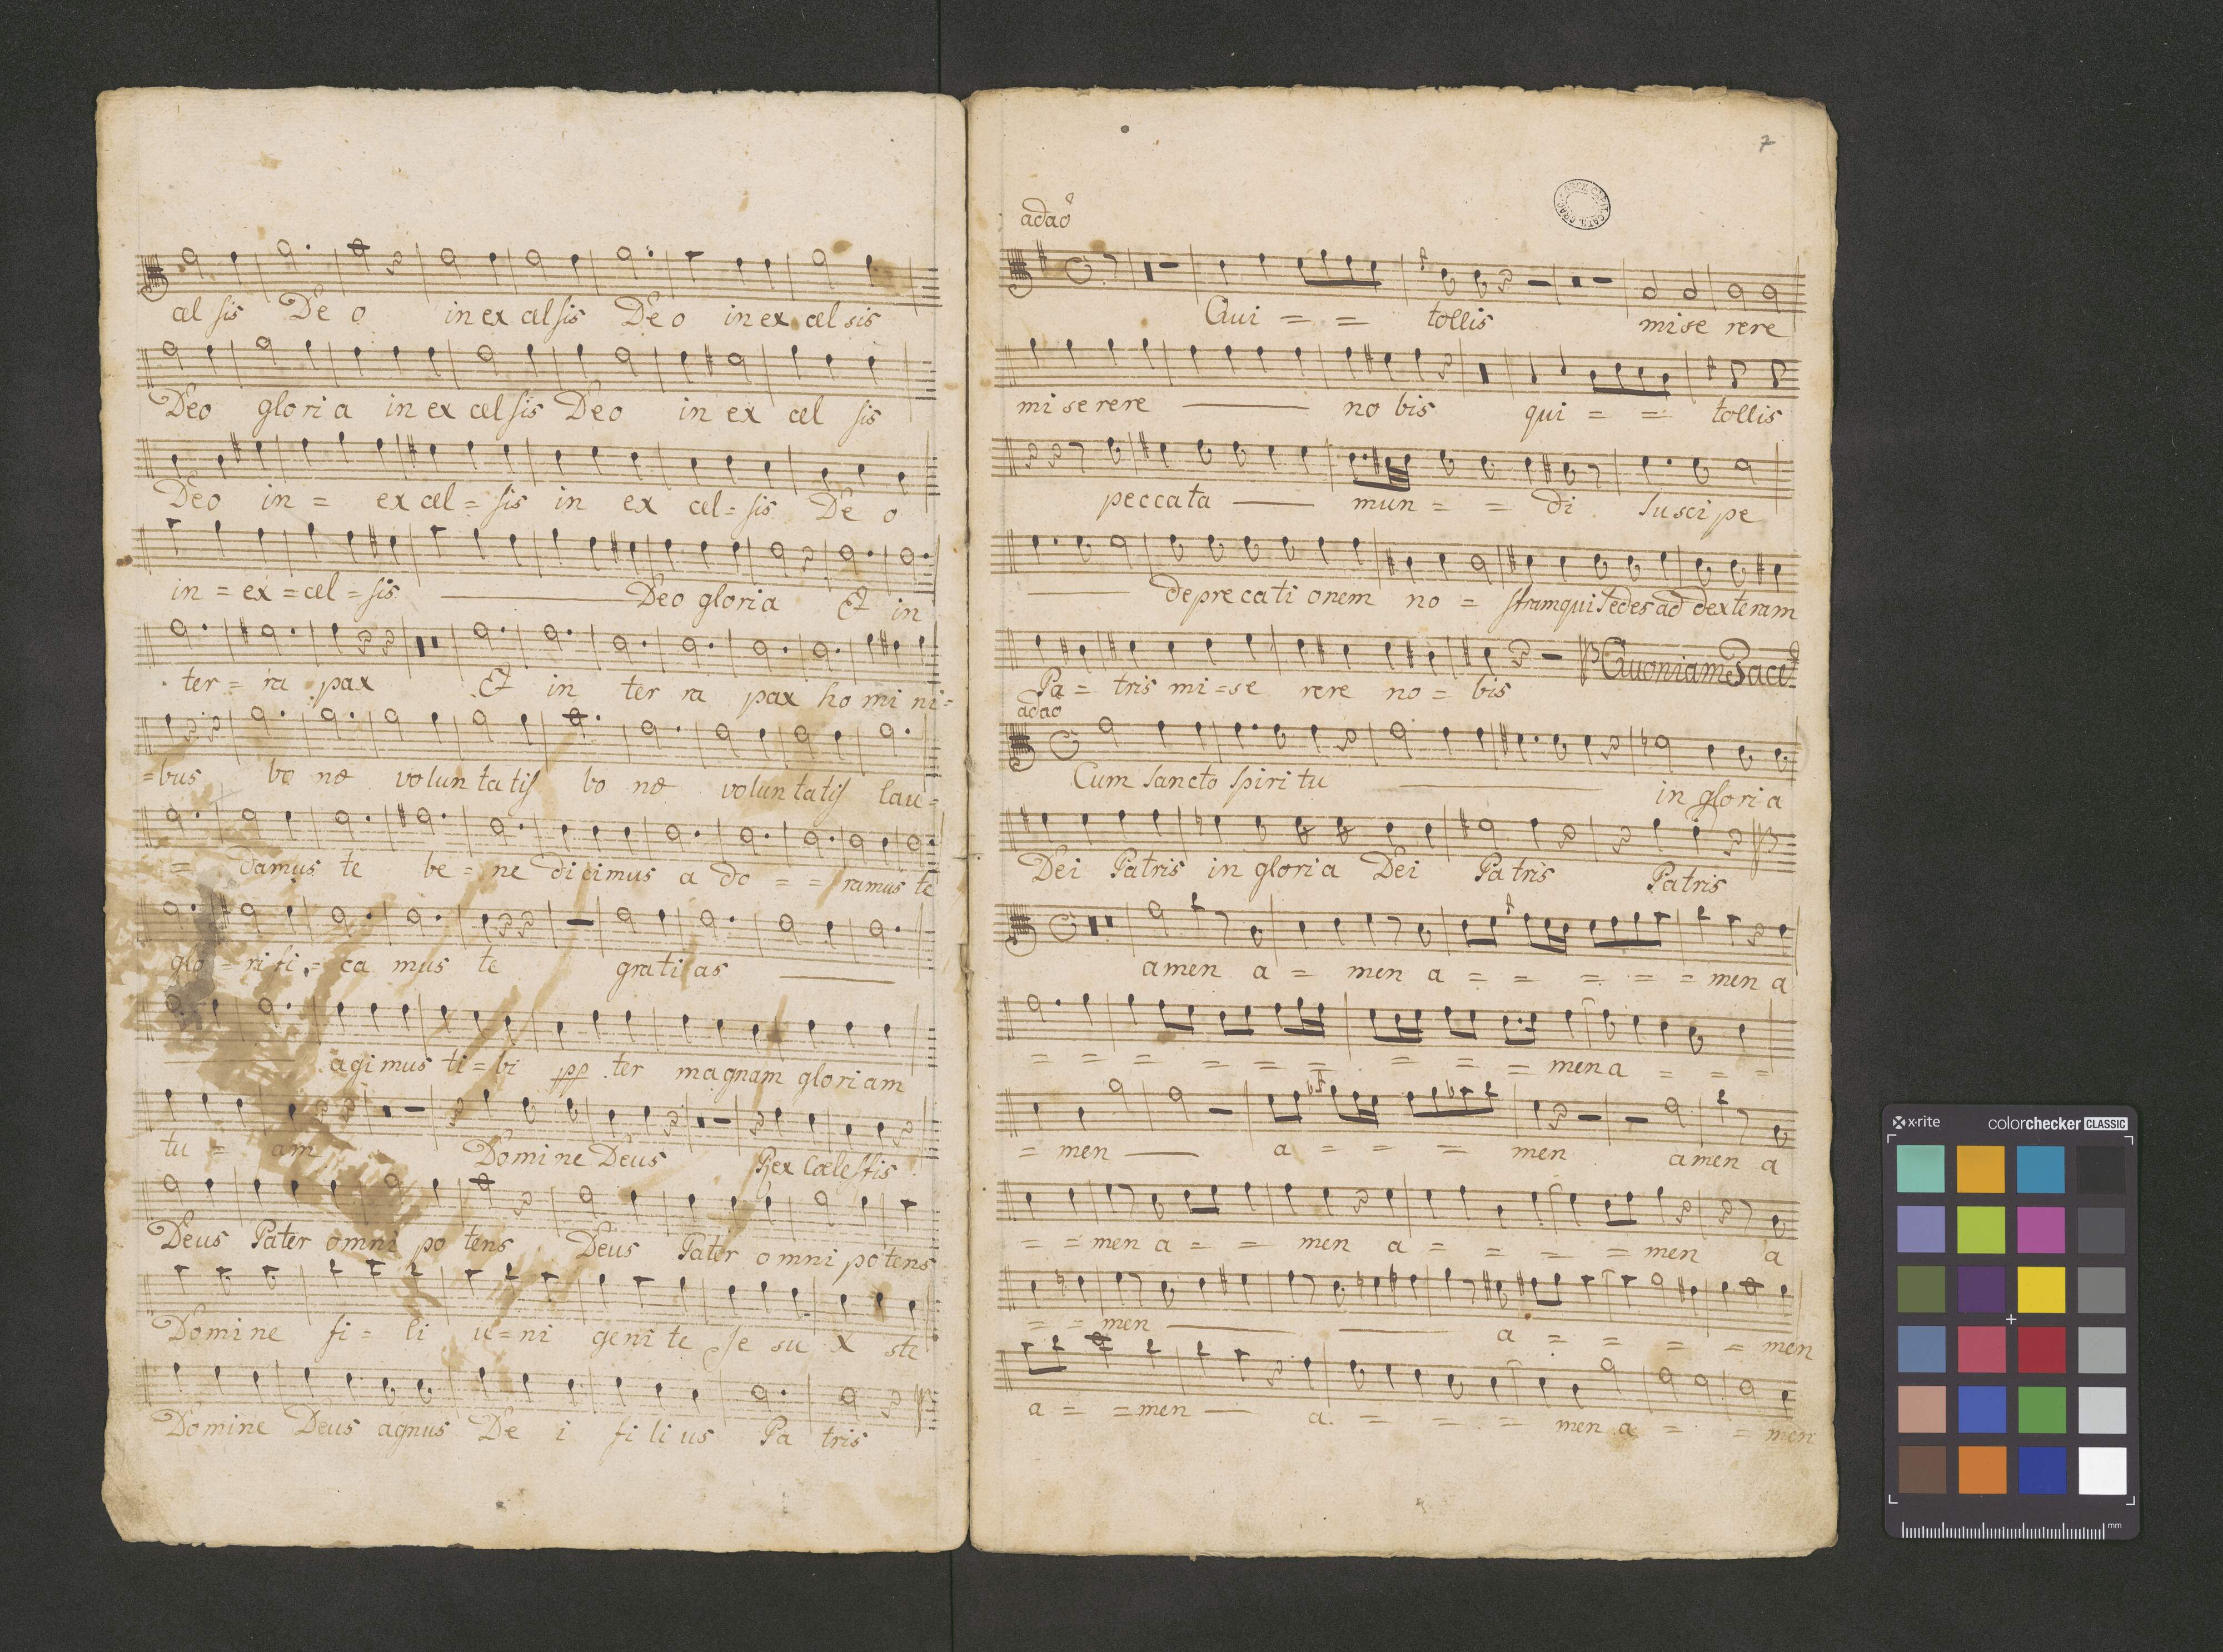 cel sis De o in ex cel sis De o in ex cel sis
Deo gloria in ex cel sis Deo in ex cel sis
Deo in = ex cel = sis in ex cel = sis De o
in = ex = cel = sis Deo gloria Et in
ter = ra pax Et in ter ra pax ho mi ni =
= bus bo næ volun ta tis bo næ volun ta tis lau =
= damus te be = ne dicimus a do = = ramus te
glo = ri fi = ca mus te grati as
agimus ti = bi pp ter magnam gloriam
tu = am Domine Deus Rex Cælestis
Deus Pater omni po tens Deus Pater omni potens
Domine fi = li u = ni geni te Je su X ste
Domine Deus agnus De i fi li us Pa tris
7
adao
Qui = = tollis mise rere
mi se rere no bis qui = = tollis
peccata mun = = di Susci pe
deprecati onem no = stram qui Sedes ad dexteram
Pa = tris mi = se rere no = bis Quoniam Tacet
adao
Cum Sancto Spiri tu in gloria
Dei Patris in gloria Dei Patris Patris
amen a = men a = = = = = men a
= = = = = = = = = men a = = =
= men a = = = men amen a
= = men a = = men a = = = = men a
= = men a = = = = men
a = = men a = = = men a = = men
x-rite colorchecker CLASSIC
mm